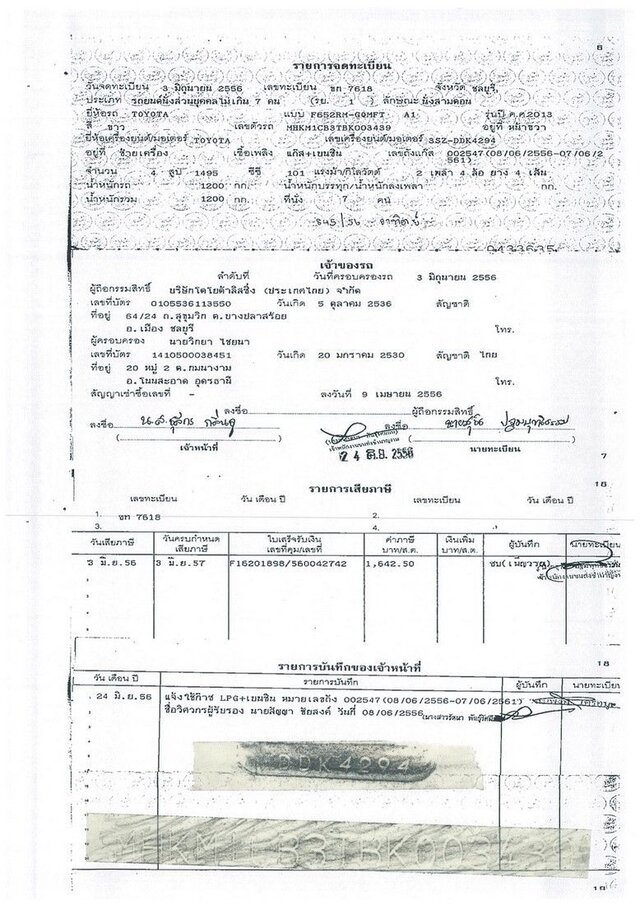 6
รายการจดทะเบียน
วันจดทะเบียน 3 มิถุนายน 2556 เลขทะเบียน ขก 7618 จังหวัด ชลบุรี
ประเภท รถยนต์นั่งส่วนบุคคลไม่เกิน 7 คน (รย. 1 ) ลักษณะ นั่งสามตอน
ยี่ห้อรถ TOYOTA แบบ F652RM-GQMFT A1 รุ่นปี ค.ศ 2013
สี ขาว เลขตัวรถ MHKM1CB3TBK003439 อยู่ที่ หน้าขวา
ยี่ห้อเครื่องยนต์/มอเตอร์ TOYOTA เลขเครื่องยนต์/มอเตอร์ 3SZ-DDK4294
อยู่ที่ ซ้ายเครื่อง เชื้อเพลิง แก๊ส+เบนซิน เลขถังแก๊ส 002547(08/06/2556-07/06/2
561)
จำนวน 4 สูบ 1495 ซีซี 101 แรงม้า/กิโลวัตต์ 2 เพลา 4 ล้อ ยาง 4 เส้น
น้ำหนักรถ 1200 กก. น้ำหนักบรรทุก/น้ำหนักลงเพลา กก.
น้ำหนักรวม 1200 กก. ที่นั่ง 7 คน
เจ้าของรถ
ลำดับที่ วันที่ครอบครองรถ 3 มิถุนายน 2556
ผู้ถือกรรมสิทธิ์ บริษัทโตโยต้าลีสซิ่ง (ประเทศไทย) จำกัด
เลขที่บัตร 0105536113550 วันเกิด 5 ตุลาคม 2536 สัญชาติ
ที่อยู่ 64/24 ถ.สุขุมวิท ต.บางปลาสร้อย
อ.เมือง ชลบุรี โทร.
ผู้ครอบครอง นายวิทยา ไชยนา
เลขที่บัตร 1410500038451 วันเกิด 20 มกราคม 2530 สัญชาติ ไทย
ที่อยู่ 20 หมู่ 2 ต.ทมนางาม
อ.โนนสะอาด อุดรธานี โทร.
สัญญาเช่าซื้อเลขที่ - ลงวันที่ 9 เมษายน 2556
ลงชื่อ ผู้ถือกรรมสิทธิ์
ลงชื่อ ลงชื่อ
เจ้าหน้าที่ นายทะเบียน
7
รายการเสียภาษี
16
เลขทะเบียน วัน เดือน ปี เลขทะเบียน วัน เดือน ปี
1. ขก 7618 2.
3. 4.
วันเสียภาษี วันครบกำหนดเสียภาษี ใบเสร็จรับเงิน เลขที่คุม/เลขที่ ค่าภาษี บาท/ส.ต. เงินเพิ่ม บาท/ส.ต. ผู้บันทึก นายทะเบียน
3 มิ.ย.56 3 มิ.ย.57 F16201898/560042742 1,642.50
รายการบันทึกของเจ้าหน้าที่
18
วัน เดือน ปี รายการบันทึก ผู้บันทึก นายทะเบียน
24 มิ.ย.56 แจ้งใช้ก๊าซ LPG+เบนซิน หมายเลขถัง 002547(08/06/2556-07/06/2561)
ชื่อวิศวกรผู้รับรอง นายสัญญา ชัยสงค์ วันที่ 08/06/2556
DDK4294
19